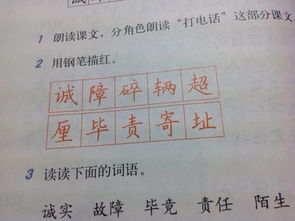 1 朗读课文，分角色朗读“打电话”这部分课文
2 用钢笔描红。
诚 障 碎 辆 超
厘 毕 责 寄 址
3 读读下面的词语。
诚实 故障 毕竟 责任 陌生